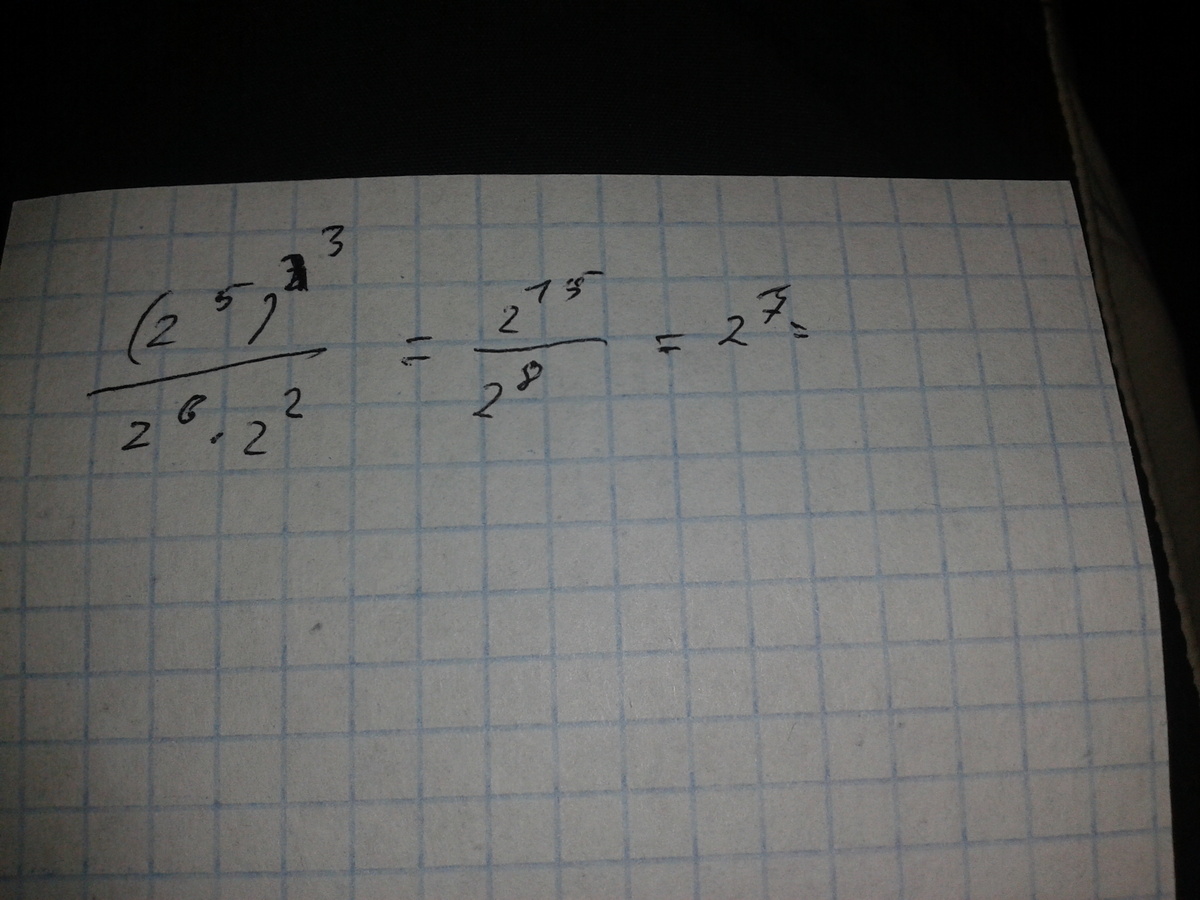 (2^5)^3 / (2^6 · 2^2) = 2^15 / 2^8 = 2^7 =